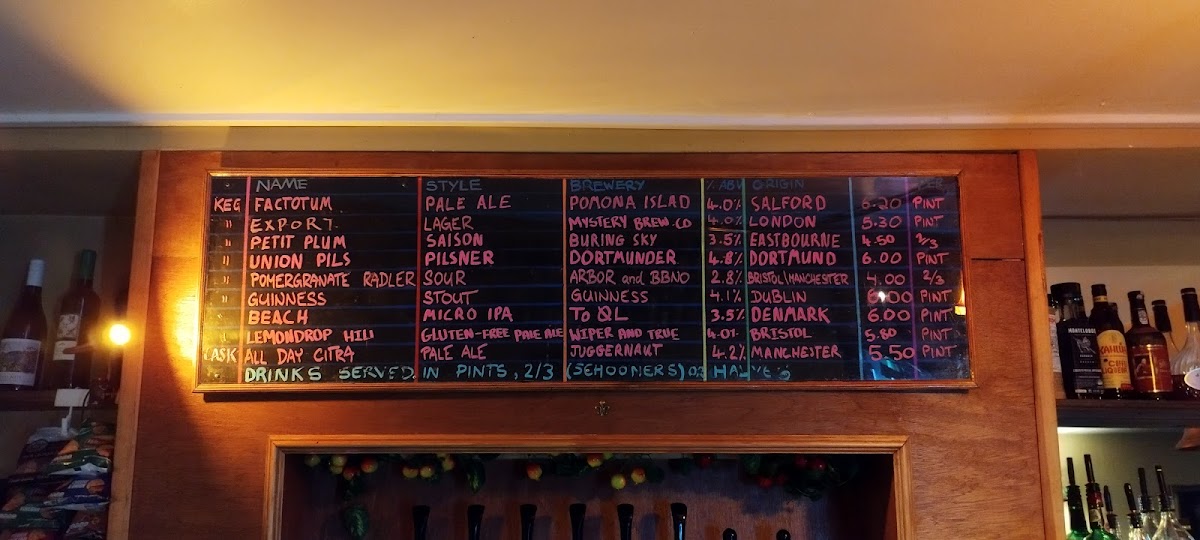 NAME STYLE BREWERY % ABV ORIGIN PER
KEG FACTOTUM PALE ALE POMONA ISLAD 4.0% SALFORD 6.20 PINT
" EXPORT LAGER MYSTERY BREW.CO 4.0% LONDON 5.30 PINT
" PETIT PLUM SAISON BURING SKY 3.5% EASTBOURNE 4.50 2/3
" UNION PILS PILSNER DORTMUNDER 4.8% DORTMUND 6.00 PINT
" POMERGRANATE RADLER SOUR ARBOR and BBNO 2.8% BRISTOL|MANCHESTER 4.00 2/3
" GUINNESS STOUT GUINNESS 4.1% DUBLIN 6.00 PINT
" BEACH MICRO IPA TO ØL 3.5% DENMARK 6.00 PINT
" LEMONDROP HILL GLUTEN-FREE PALE ALE WIPER AND TRUE 4.0% BRISTOL 5.80 PINT
CASK ALL DAY CITRA PALE ALE JUGGERNAUT 4.2% MANCHESTER 5.50 PINT
DRINKS SERVED IN PINTS, 2/3 (SCHOONERS) OR
MONTELOBOS
KAHLÚA